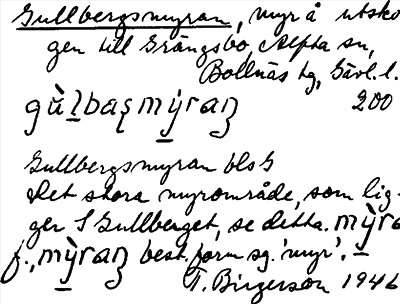 Gullbergsmyran, myr å utsko
gen till Grängsbo, Alfta sn,
Bollnäs tg, Gävl. l.
gùl̠baʂmy̠raɳ 200
Gullbergsmyran bls G
Det stora myrområde, som lig-
ger S Gullberget, se detta. mỳ̠ra
f., mỳ̠raɳ best. form sg. 'myr'. –
T. Birgerson 1946